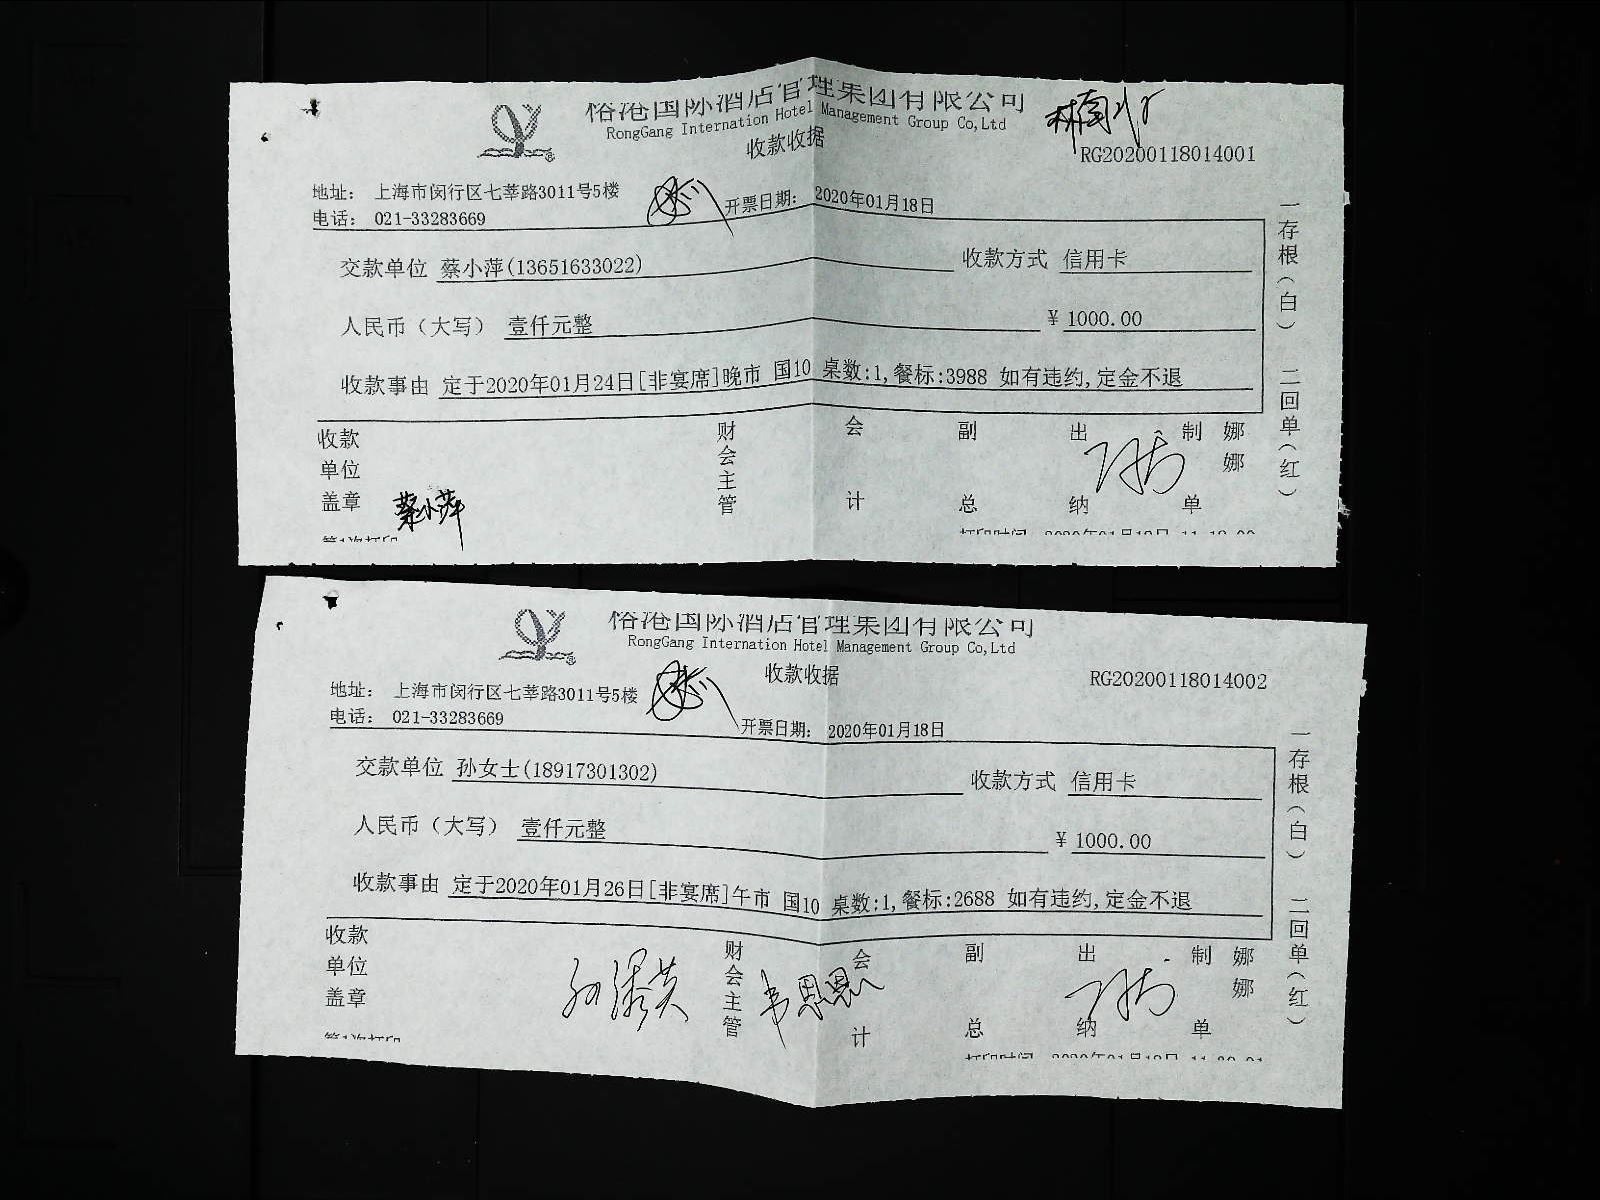 裕港国际酒店管理集团有限公司
RongGang Internation Hotel Management Group Co,Ltd
收款收据
RG20200118014001
地址： 上海市闵行区七莘路3011号5楼
电话： 021-33283669
开票日期： 2020年01月18日
交款单位 蔡小萍(13651633022) 收款方式 信用卡
人民币（大写） 壹仟元整 ¥ 1000.00
收款事由 定于2020年01月24日[非宴席]晚市 国10 桌数:1,餐标:3988 如有违约,定金不退
一存根（白） 二回单（红）
收款单位盖章 蔡小萍 财会主管 会计 副总 出纳 制单 娜娜
第1次打印
裕港国际酒店管理集团有限公司
RongGang Internation Hotel Management Group Co,Ltd
收款收据
RG20200118014002
地址： 上海市闵行区七莘路3011号5楼
电话： 021-33283669
开票日期： 2020年01月18日
交款单位 孙女士(18917301302) 收款方式 信用卡
人民币（大写） 壹仟元整 ¥ 1000.00
收款事由 定于2020年01月26日[非宴席]午市 国10 桌数:1,餐标:2688 如有违约,定金不退
一存根（白） 二回单（红）
收款单位盖章 财会主管 会计 副总 出纳 制单 娜娜
第1次打印